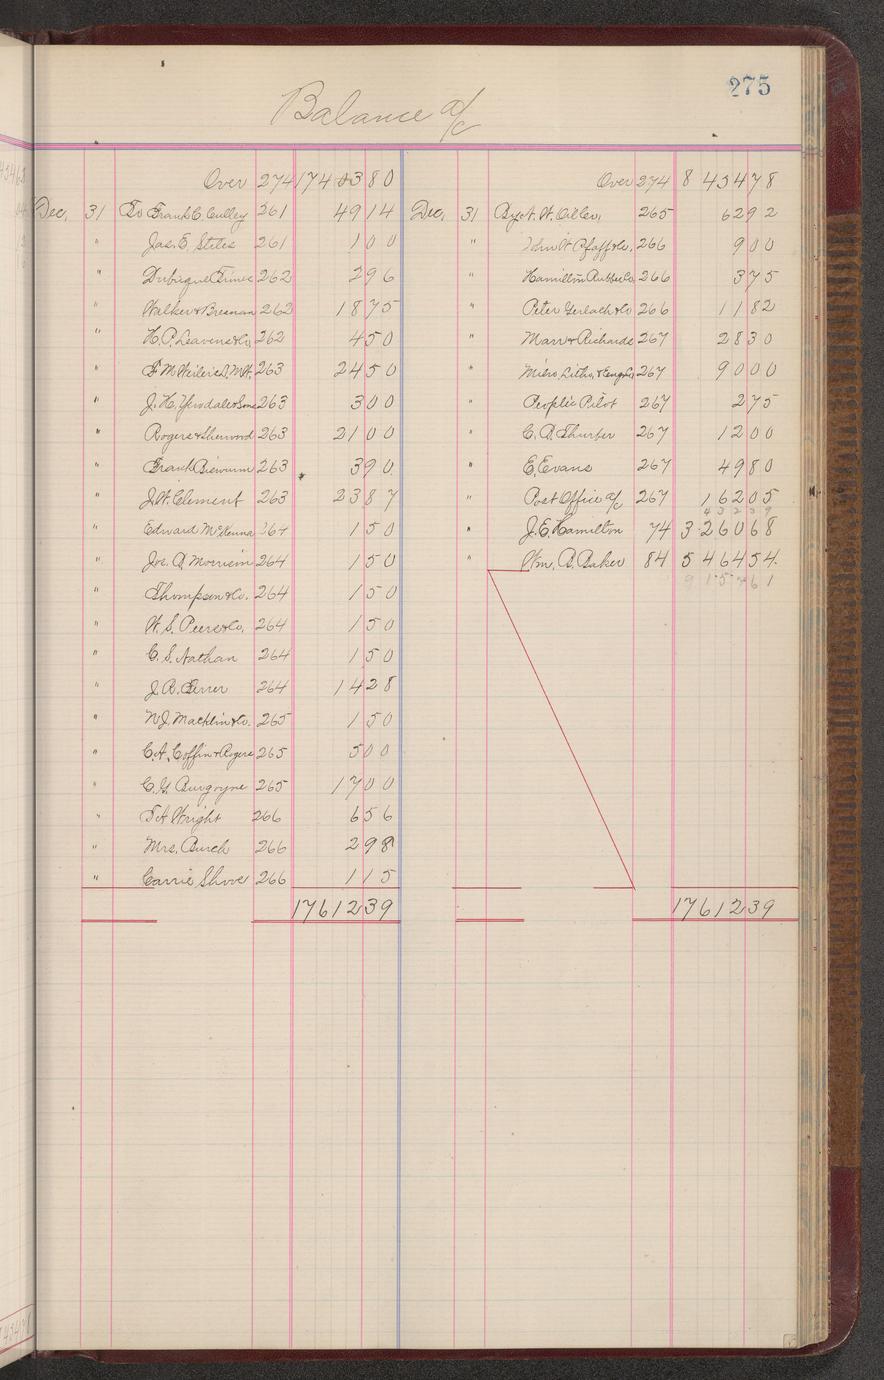 275
Balance a/c
Over 274 17403 80
Dec. 31 To Frank C. Culley 261 49 14
" Jas. E. Stiles 261 1 00
" Dubuque Times 262 2 96
" Walker & Bresnan 262 18 75
" H. P. Leavens & Co. 262 4 50
" 263 24 50
" 263 3 00
" Rogers & Sherwood 263 21 00
" Frank Biewurm 263 3 90
" J. W. Clement 263 23 87
" Edward McKenna 264 1 50
" Jos. A. Morrison 264 1 50
" Thompson & Co. 264 1 50
" W. S. Peers & Co. 264 1 50
" C. S. Nathan 264 1 50
" J. B. 264 14 28
" W. J. Macklin & Co. 265 1 50
" C. A. Coffin & Rogers 265 5 00
" C. G. Burgoyne 265 17 00
" Wright 266 6 56
" Mrs. Burch 266 2 98
" Carrie Shove 266 1 15
17612 39
Over 274 8 454 78
Dec. 31 By 265 62 92
" John W. Pfaff & Co. 266 9 00
" Hamilton Rubber Co 266 3 75
" Peter Gerlach & Co 266 11 82
" Marr & Richards 267 28 30
" Litho. & Eng. Co 267 90 00
" Peoples Pilot 267 2 75
" C. D. Thurber 267 12 00
" E. Evans 267 49 80
" Post Office a/c 267 162 05
" J. E. Hamilton 74 3 260 68
" Wm. B. Baker 84 5 464 54
17612 39